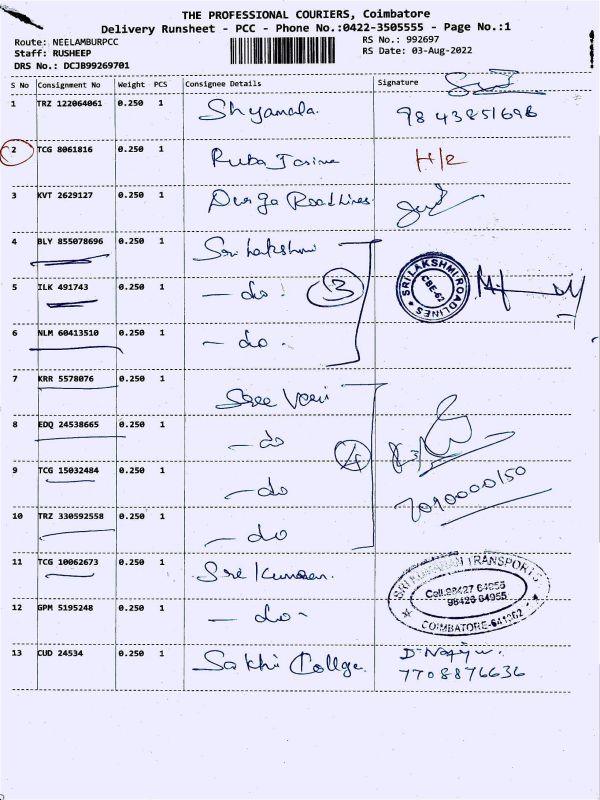 THE PROFESSIONAL COURIERS, Coimbatore
Delivery Runsheet - PCC - Phone No.:0422-3505555 - Page No.:1
Route: NEELAMBURPCC
Staff: RUSHEEP
DRS No.: DCJB99269701
RS No.: 992697
RS Date: 03-Aug-2022
S No Consignment No Weight PCS Consignee Details Signature
1 TRZ 122064061 0.250 1 Shyamala 9843851698
2 TCG 8061816 0.250 1 Ruba H/R
3 KVT 2629127 0.250 1 Durga RoadLines
4 BLY 855078696 0.250 1 Sri Lakshmi
5 ILK 491743 0.250 1 - do - 3
SRI LAKSHMI ROADLINES
CBE-62
6 NLM 60413510 0.250 1 - do -
7 KRR 5578076 0.250 1 Sree
8 EDQ 24538665 0.250 1 - do 4
9 TCG 15032484 0.250 1 - do
7010000150
10 TRZ 330592558 0.250 1 - do
11 TCG 10062673 0.250 1 Sri Kumaran
SRI KUMARAN TRANSPORTS
Cell:98427 64955
98426 64955
COIMBATORE-641062
12 GPM 5195248 0.250 1 - do -
13 CUD 24534 0.250 1 Sakhi Collge
7708876636